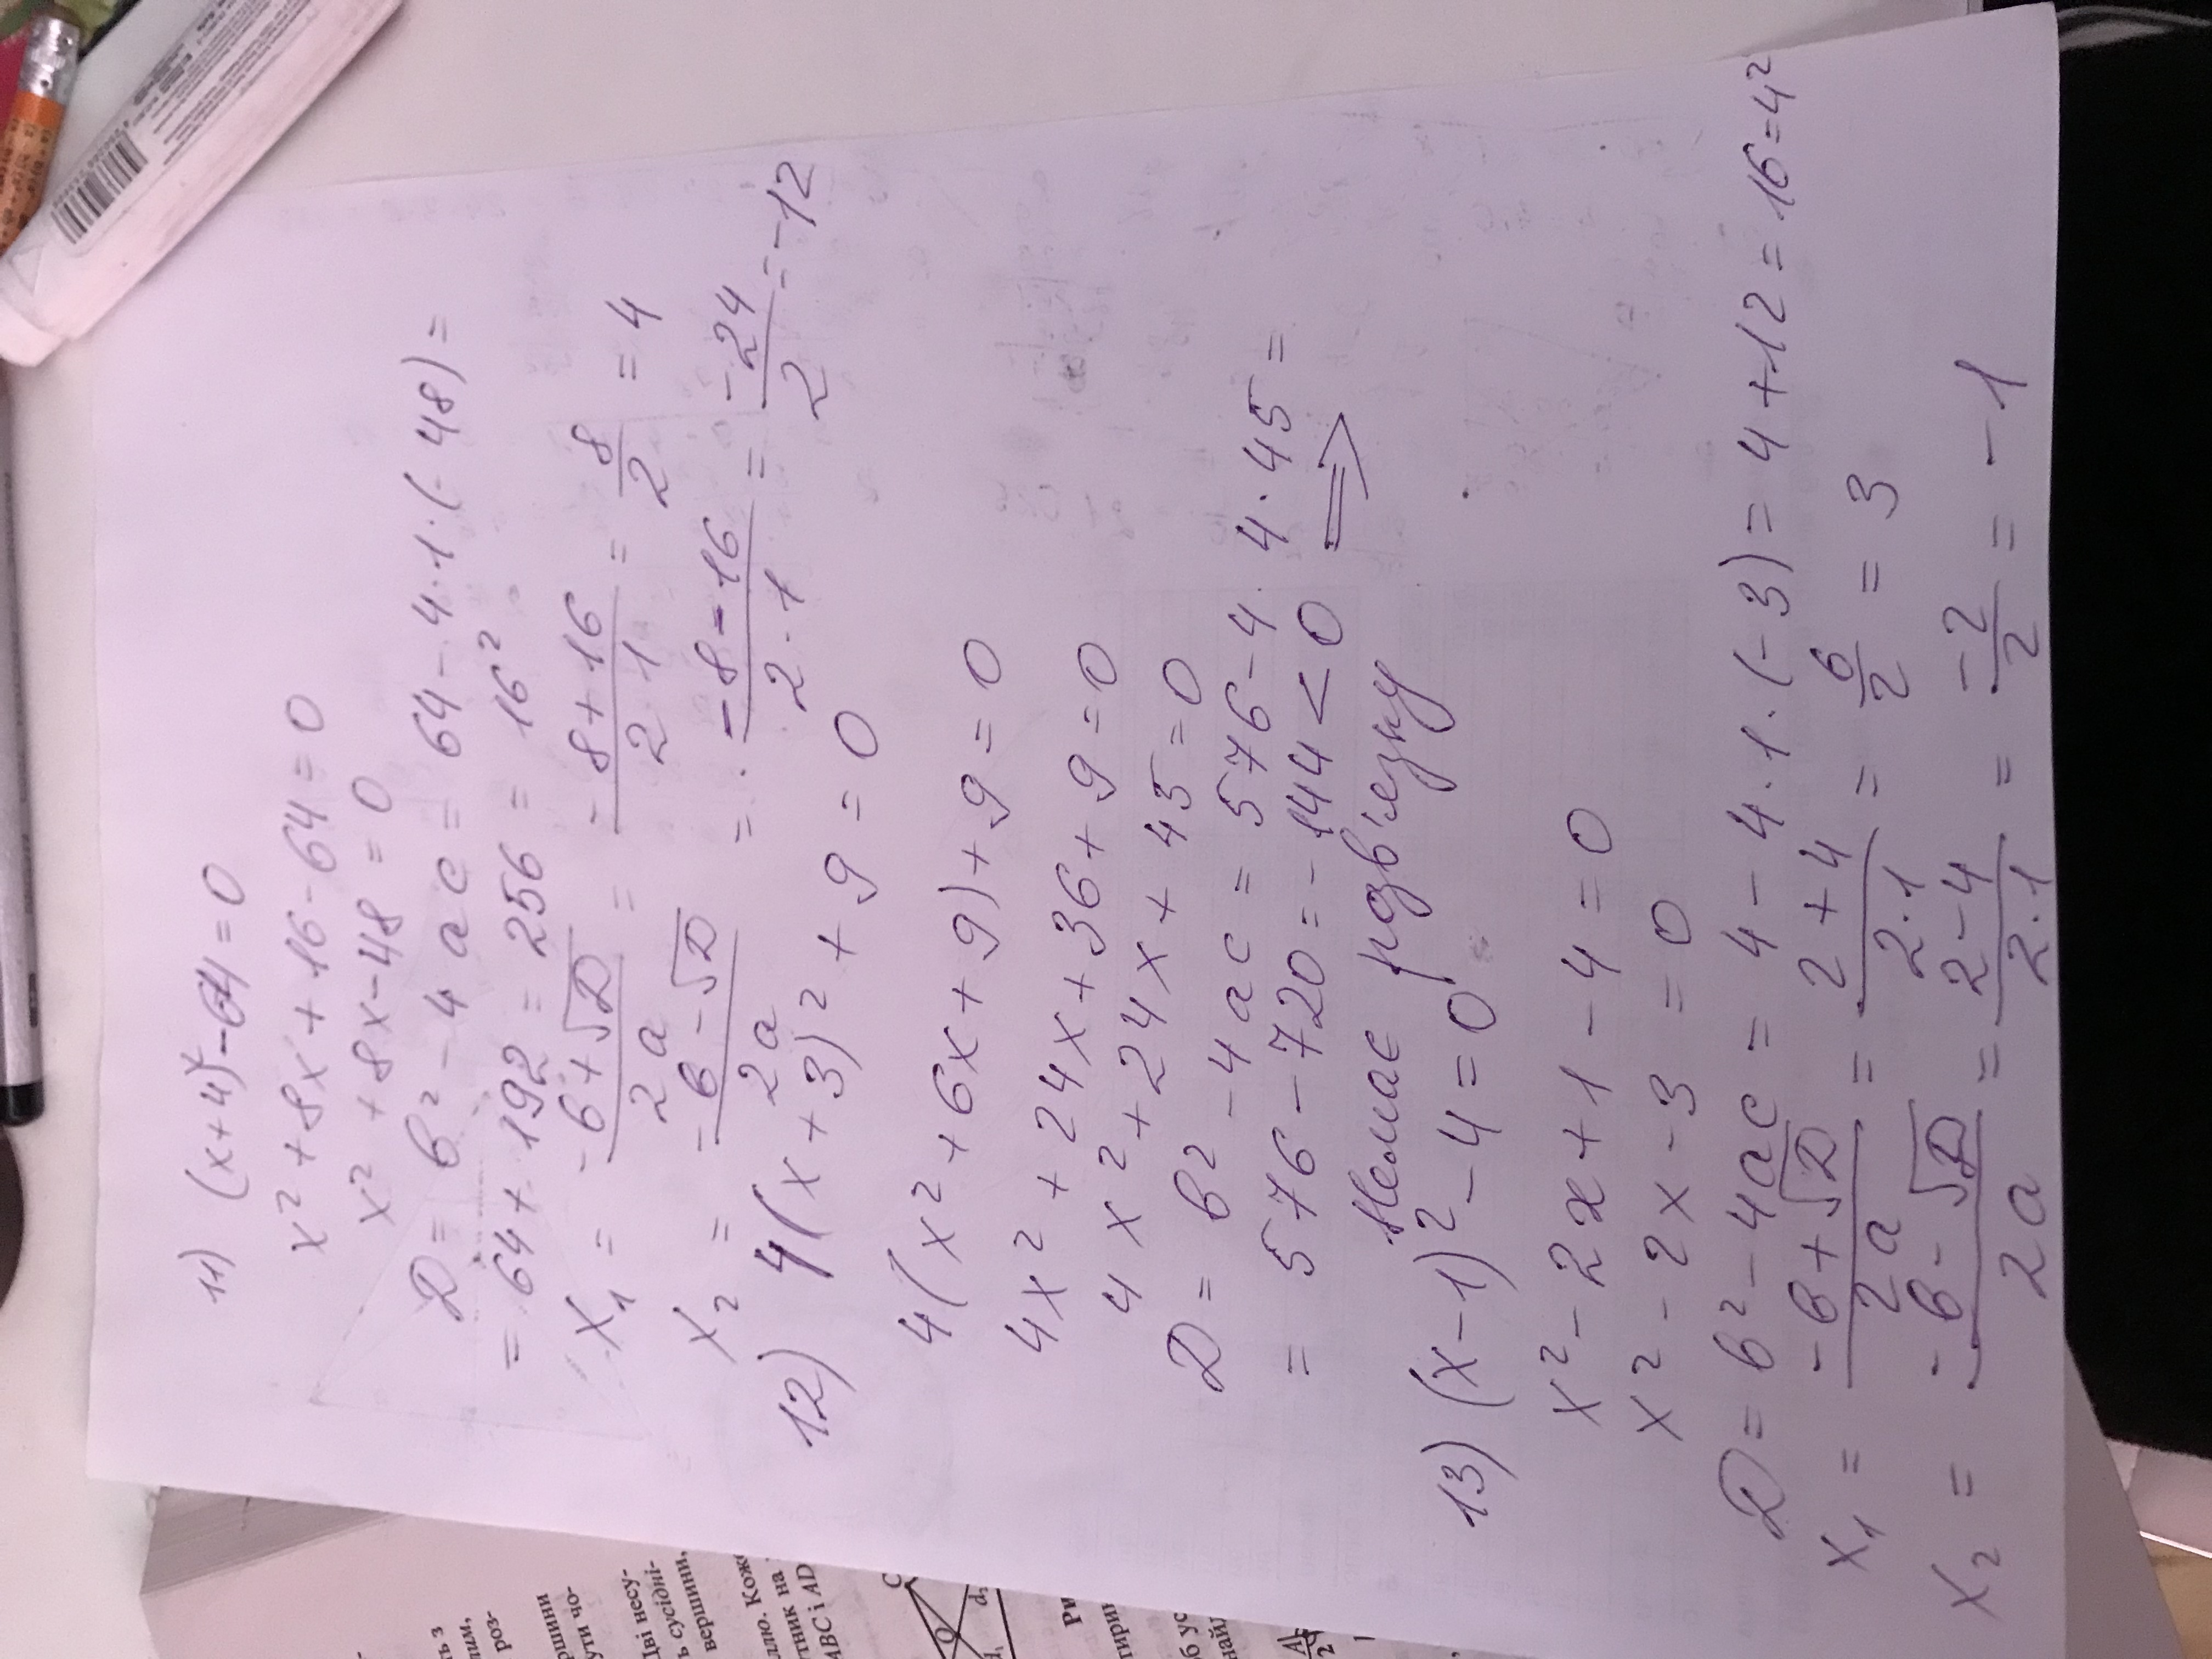 11) (x+4)²-64=0
x²+8x+16-64=0
x²+8x-48=0
D= b²-4ac = 64-4·1·(-48)=
= 64+192=256 = 16²
x₁ = -b+√D/2a = -8+16/2·1 = 8/2 = 4
x₂ = -b-√D/2a = -8-16/2·1 = -24/2 = -12
12) 4(x+3)²+9=0
4(x²+6x+9)+9=0
4x²+24x+36+9=0
4x²+24x+45=0
D= b²-4ac = 576-4·4·45=
= 576-720=-144<0 ⟹
Немає розв'язку
13) (x-1)²-4=0
x²-2x+1-4=0
x²-2x-3=0
D= b²-4ac = 4-4·1·(-3)=4+12=16=4²
x₁ = -b+√D/2a = 2+4/2·1 = 6/2 = 3
x₂ = -b-√D/2a = 2-4/2·1 = -2/2 = -1
роз-
Дві несу-
ь сусідні-
вершини,
ABC і AD